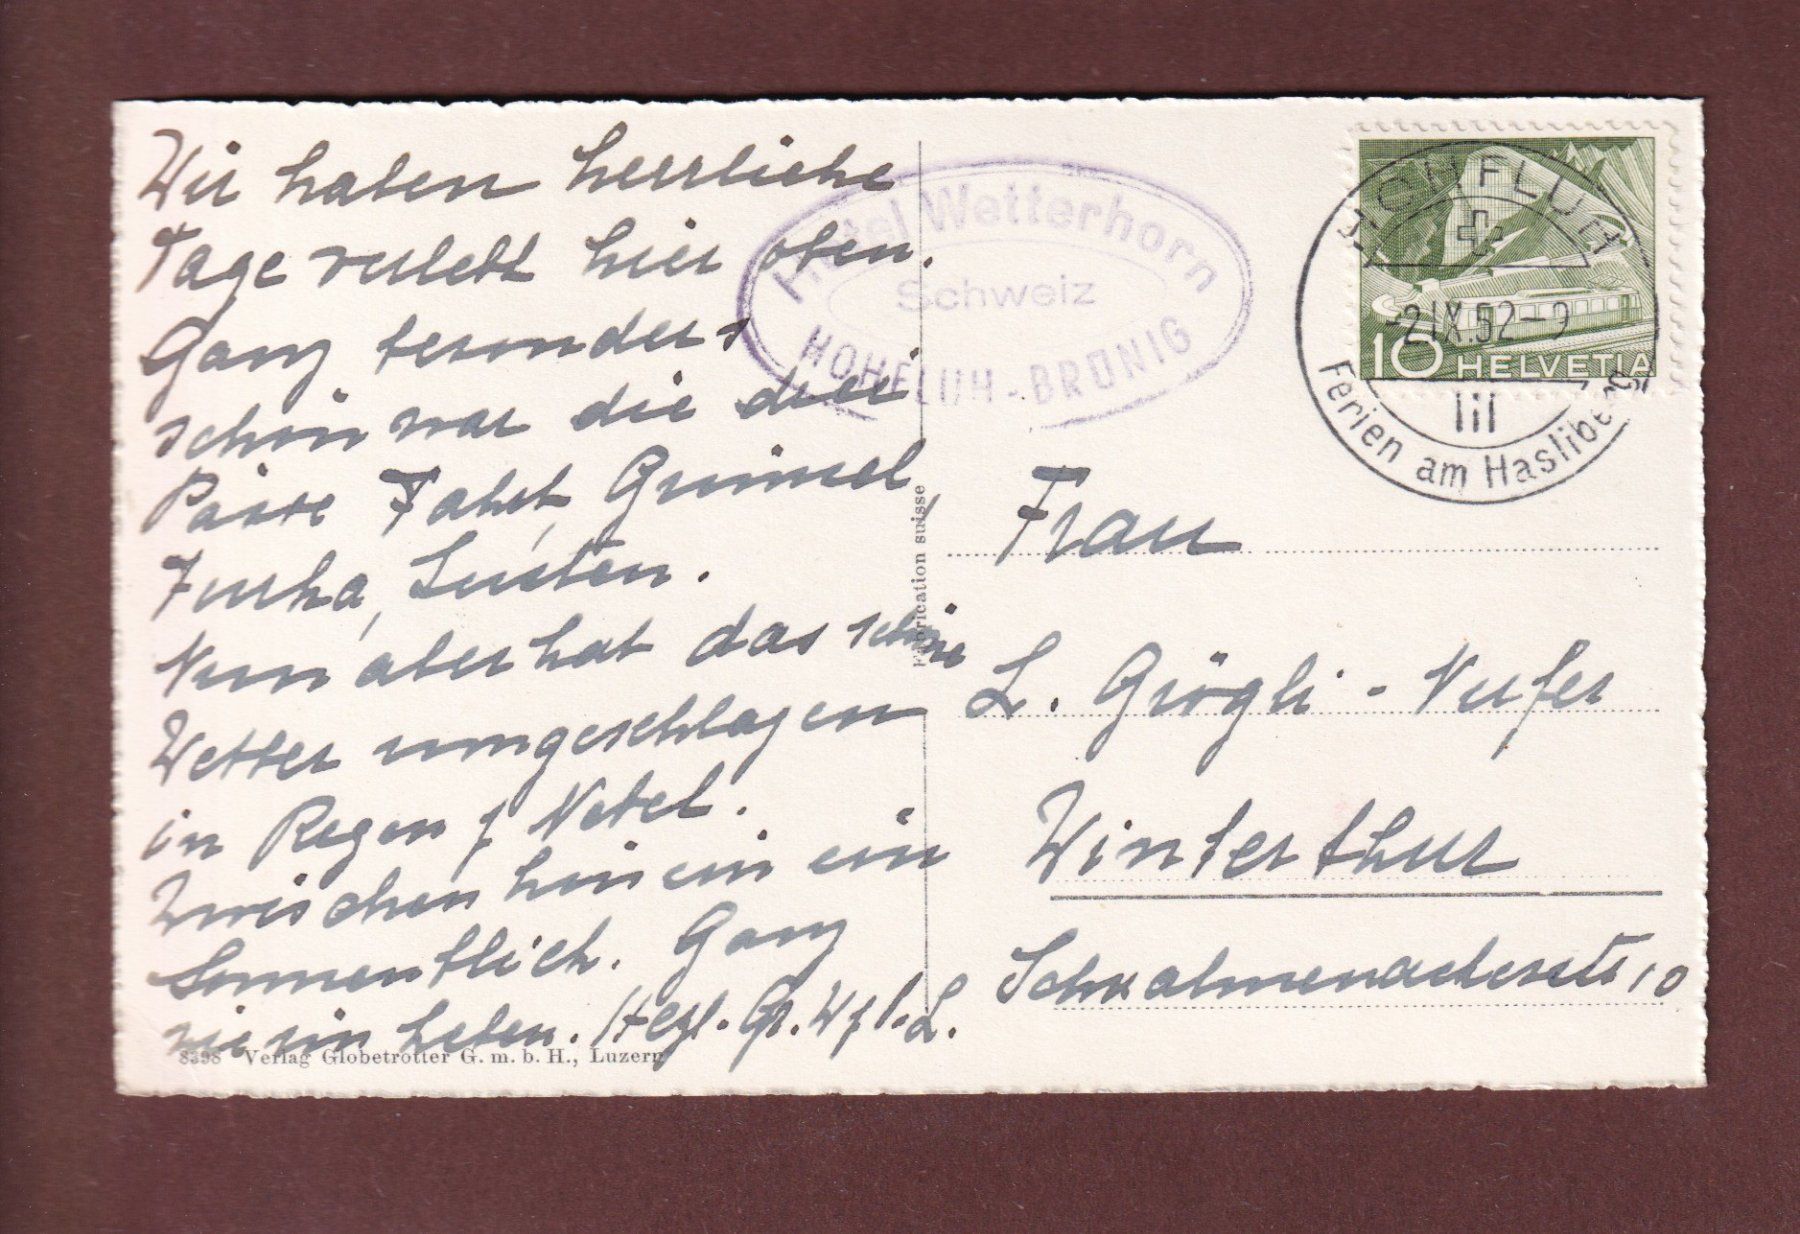 Wir haben herrliche
Tage verlebt hier oben.
Ganz besonders
schön war die drei
Pässe Fahrt, Grimsel,
Furka, Susten.
Nun aber hat das schöne
Wetter umgeschlagen
in Regen & Nebel.
Zwischen hinein ein
Sonnenblick. Ganz
wie im Leben. Herzl. Gr. W & L.
8398 Verlag Globetrotter G. m. b. H., Luzern
Fabrication suisse
Hotel Wetterhorn
Schweiz
HOHFLUH-BRÜNIG
HOHFLUH
-2.IX.52-9
Ferien am Hasliberg
10 HELVETIA
Frau
L. Grögli - Nufer
Winterthur
10